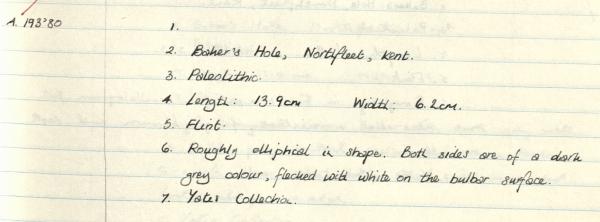 A. 193'80
1.
2. Baker's Hole, Northfleet, Kent.
3. Paleolithic.
4. Length: 13.9cm Width: 6.2cm.
5. Flint.
6. Roughly elliptical in shape. Both sides are of a dark
grey colour, flecked with white on the bulbar surface.
7. Yates Collection.